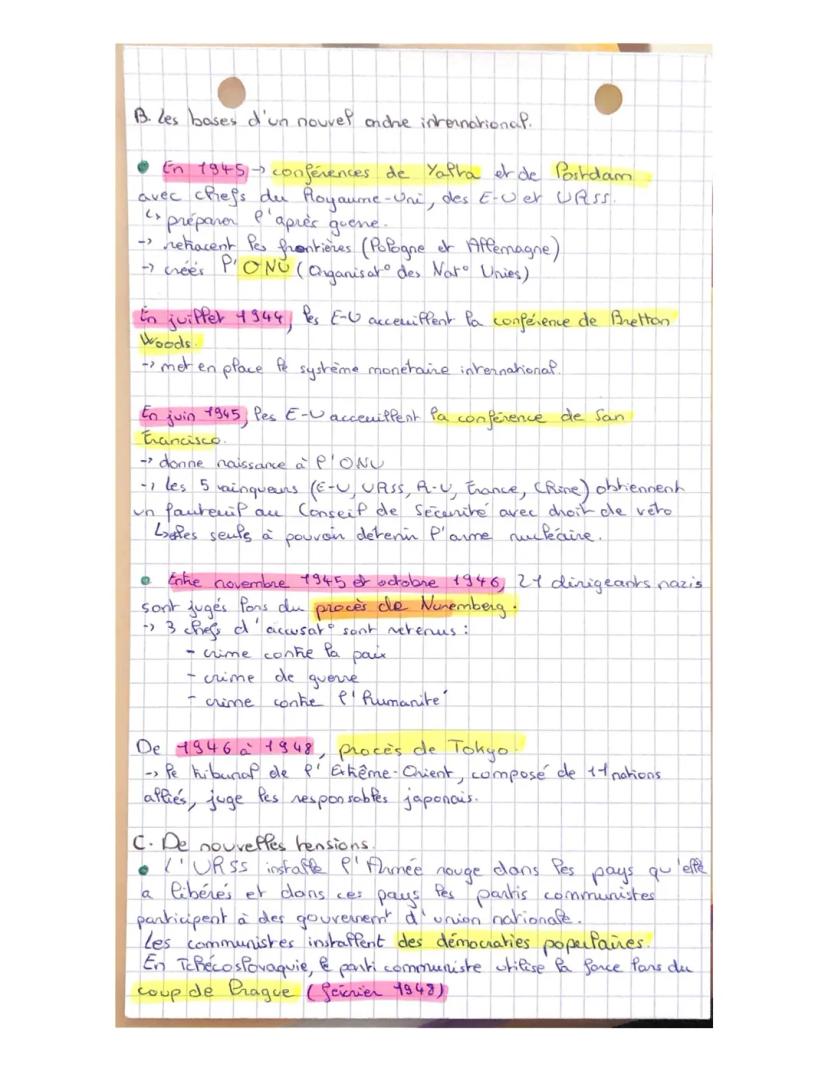 B. Les bases d'un nouvel ordre international.
• En 1945 → conférences de Yalta et de Postdam
avec chefs du Royaume-Uni, des E-U et URSS.
↳ préparer l'après guerre.
-> retracent les frontières (Pologne et Allemagne)
-> créés l'ONU (Organisat° des Nat° Unies)
En juillet 1944, les E-U acceuillent la conférence de Bretton
Woods.
-> met en place le système monétaire international.
En juin 1945, les E-U acceuillent la conférence de San
Francisco.
-> donne naissance à l'ONU
-> Les 5 vainqueurs (E-U, URSS, R-U, France, Chine) obtiennent
un fauteuil au Conseil de Sécurité avec droit de véto
↳ les seuls à pouvoir détenir l'arme nucléaire.
• Entre novembre 1945 et octobre 1946, 21 dirigeants nazis
sont jugés lors du procès de Nuremberg.
-> 3 chefs d'accusat° sont retenus :
- crime contre la paix
- crime de guerre
- crime contre l'humanité
De 1946 à 1948, procès de Tokyo.
-> le tribunal de l'Extrême-Orient, composé de 11 nations
alliés, juge les responsables japonais.
C. De nouvelles tensions.
• L'URSS installe l'Armée rouge dans les pays qu'elle
a libérés et dans ces pays les partis communistes
participent à des gouvernemt d'union nationale.
Les communistes installent des démocraties populaires.
En Tchécoslovaquie, le parti communiste utilise la force lors du
coup de Prague (février 1948)